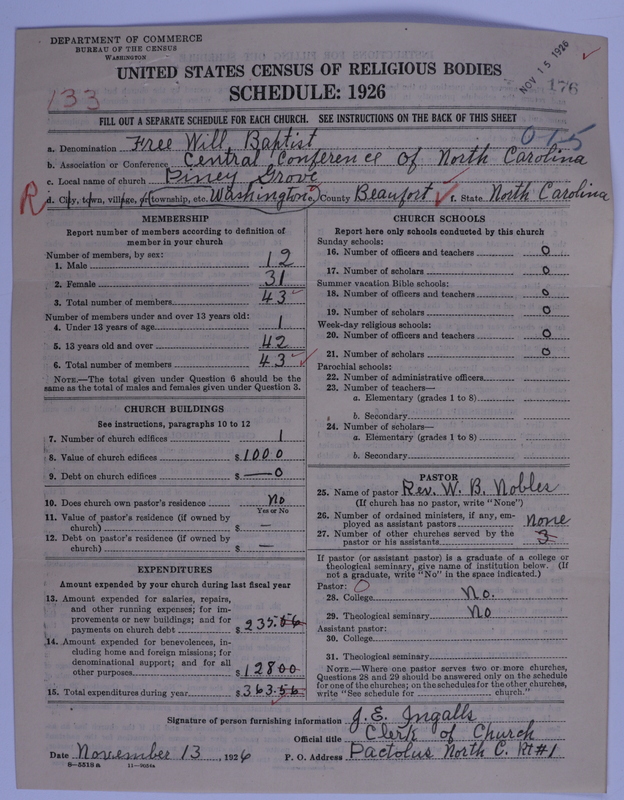 DEPARTMENT OF COMMERCE
BUREAU OF THE CENSUS
WASHINGTON
NOV 15 1926
176
UNITED STATES CENSUS OF RELIGIOUS BODIES
SCHEDULE: 1926
133
FILL OUT A SEPARATE SCHEDULE FOR EACH CHURCH. SEE INSTRUCTIONS ON THE BACK OF THIS SHEET
0-1-5
a. Denomination Free Will Baptist
b. Association or Conference Central Conference of North Carolina
c. Local name of church Piney Grove
R
d. City, town, village, or township, etc. Washington County Beaufort f. State North Carolina
MEMBERSHIP
Report number of members according to definition of
member in your church
Number of members, by sex:
1. Male 12
2. Female 31
3. Total number of members 43
Number of members under and over 13 years old:
4. Under 13 years of age 1
5. 13 years old and over 42
6. Total number of members 43
NOTE.—The total given under Question 6 should be the
same as the total of males and females given under Question 3.
CHURCH BUILDINGS
See instructions, paragraphs 10 to 12
7. Number of church edifices 1
8. Value of church edifices $1000
9. Debt on church edifices $—0
10. Does church own pastor's residence no
Yes or No
11. Value of pastor's residence (if owned by
church) $ —
12. Debt on pastor's residence (if owned by
church) $ —
EXPENDITURES
Amount expended by your church during last fiscal year
13. Amount expended for salaries, repairs,
and other running expenses; for im-
provements or new buildings; and for
payments on church debt $235.56
14. Amount expended for benevolences, in-
cluding home and foreign missions; for
denominational support; and for all
other purposes $12800
15. Total expenditures during year $363.56
CHURCH SCHOOLS
Report here only schools conducted by this church
Sunday schools:
16. Number of officers and teachers 0
17. Number of scholars 0
Summer vacation Bible schools:
18. Number of officers and teachers 0
19. Number of scholars 0
Week-day religious schools:
20. Number of officers and teachers 0
21. Number of scholars 0
Parochial schools:
22. Number of administrative officers
23. Number of teachers—
a. Elementary (grades 1 to 8)
b. Secondary
24. Number of scholars—
a. Elementary (grades 1 to 8)
b. Secondary
PASTOR
25. Name of pastor Rev. W. B. Nobles
(If church has no pastor, write "None")
26. Number of ordained ministers, if any, em-
ployed as assistant pastors none
27. Number of other churches served by the
pastor or his assistants 3
If pastor (or assistant pastor) is a graduate of a college or
theological seminary, give name of institution below. (If
not a graduate, write "No" in the space indicated.)
Pastor: 0
28. College No.
29. Theological seminary No
Assistant pastor:
30. College
31. Theological seminary
NOTE.—Where one pastor serves two or more churches,
Questions 28 and 29 should be answered only on the schedule
for one of the churches; on the schedules for the other churches,
write "See schedule for church."
Signature of person furnishing information J. E. Ingalls
Official title Clerk of Church
Date November 13, 1926 P. O. Address Pactolus North C. Rt#1
8—5518a 11—9054a